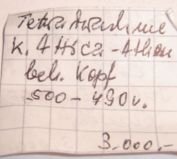 Tetradrachme
K. Attica-Athen
beh. Kopf
500-490 v.
3.000.-